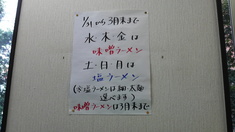 1/31から3月末まで
水木金は
味噌ラーメン
土・日月は
塩ラーメン
(※塩ラーメンは細・太麺
選べます)
味噌ラーメンは3月末まで